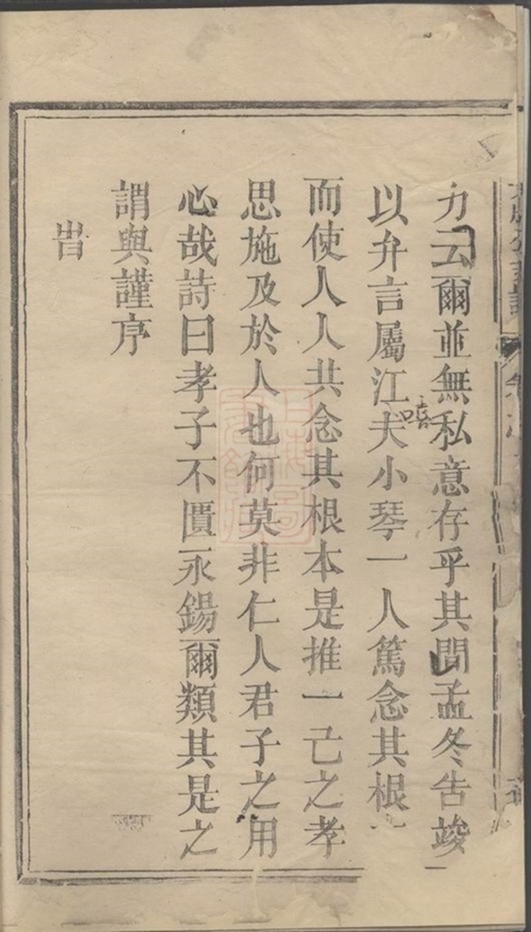 力云爾並無私意存乎其間孟冬告竣
以弁言屬江夫小琴一人篤念其根
嘻
而使人人共念其根本是推一己之孝
思施及於人也何莫非仁人君子之用
心哉詩曰孝子不匱永錫爾類其是之
謂與謹序
旹